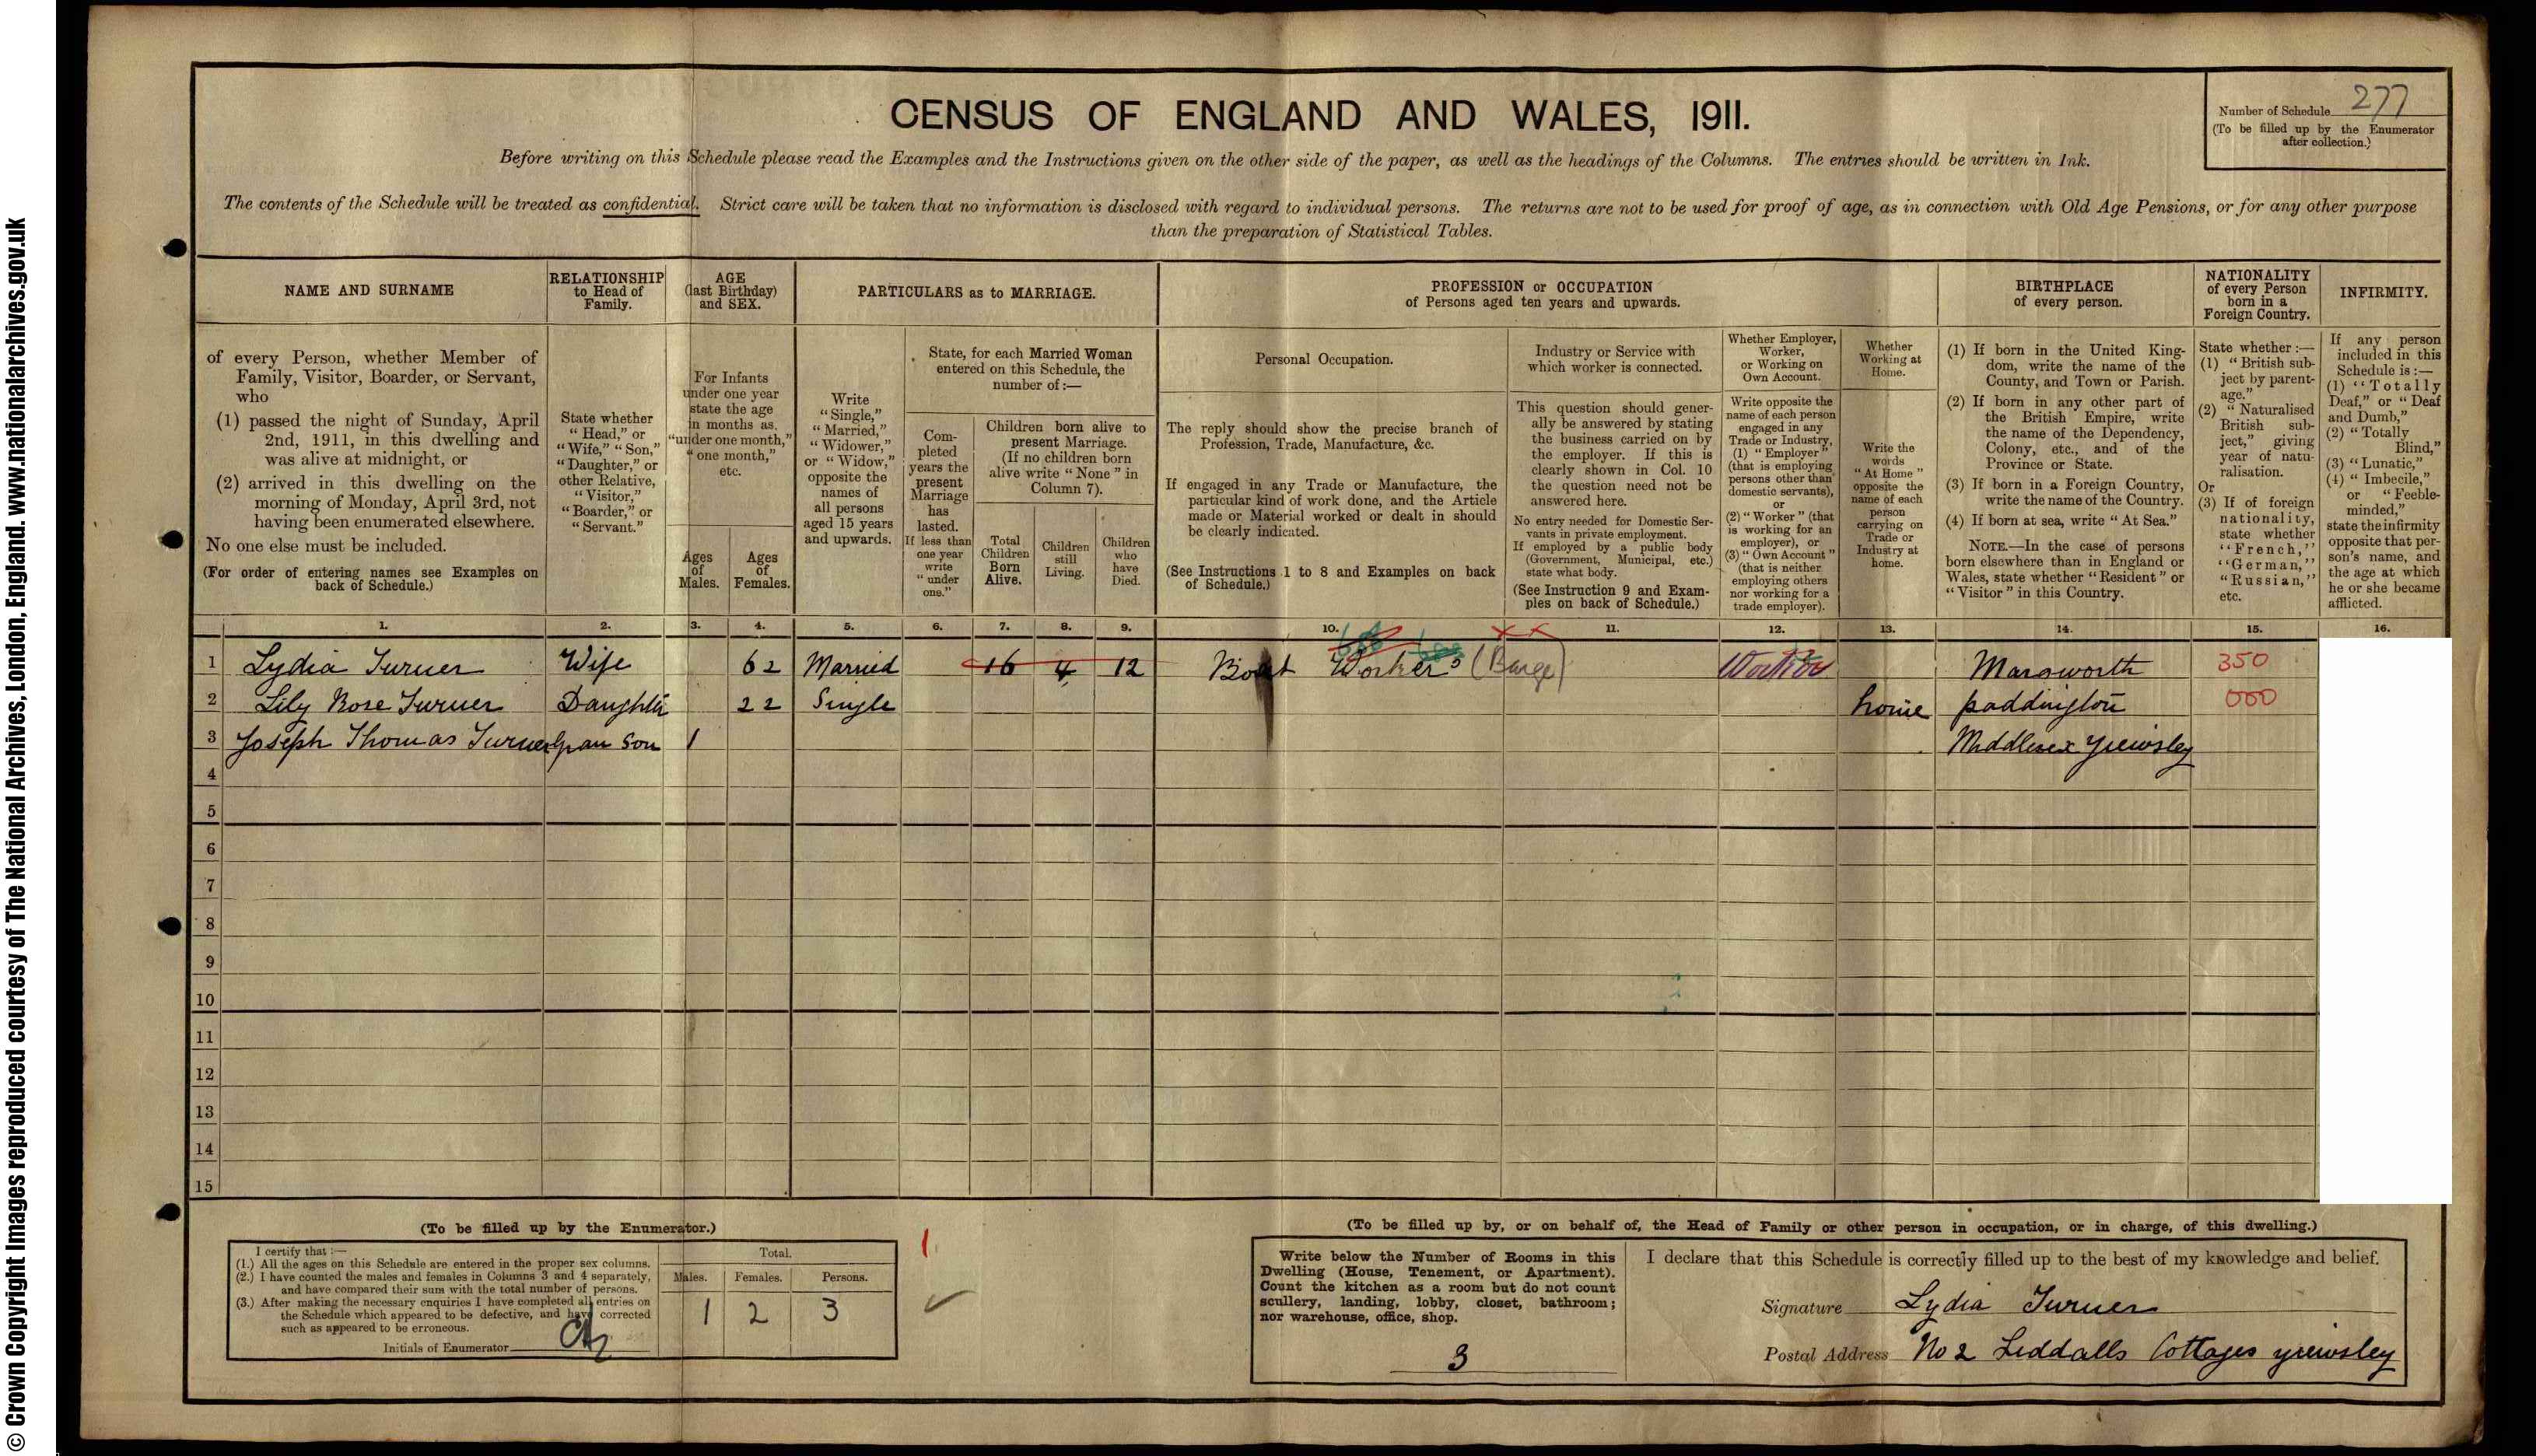 © Crown Copyright Images reproduced courtesy of The National Archives, London, England. www.nationalarchives.gov.uk
CENSUS OF ENGLAND AND WALES, 1911.
Number of Schedule 277
(To be filled up by the Enumerator
after collection.)
Before writing on this Schedule please read the Examples and the Instructions given on the other side of the paper, as well as the headings of the Columns. The entries should be written in Ink.
The contents of the Schedule will be treated as confidential. Strict care will be taken that no information is disclosed with regard to individual persons. The returns are not to be used for proof of age, as in connection with Old Age Pensions, or for any other purpose
than the preparation of Statistical Tables.
NAME AND SURNAME
of every Person, whether Member of
Family, Visitor, Boarder, or Servant,
who
(1) passed the night of Sunday, April
2nd, 1911, in this dwelling and
was alive at midnight, or
(2) arrived in this dwelling on the
morning of Monday, April 3rd, not
having been enumerated elsewhere.
No one else must be included.
(For order of entering names see Examples on
back of Schedule.)
RELATIONSHIP
to Head of
Family.
State whether
"Head," or
"Wife," "Son,"
"Daughter," or
other Relative,
"Visitor,"
"Boarder," or
"Servant."
AGE
(last Birthday)
and SEX.
For Infants
under one year
state the age
in months as.
"under one month,"
"one month,"
etc.
Ages
of
Males.
Ages
of
Females.
PARTICULARS as to MARRIAGE.
Write
"Single,"
"Married,"
"Widower,"
or "Widow,"
opposite the
names of
all persons
aged 15 years
and upwards.
State, for each Married Woman
entered on this Schedule, the
number of:—
Com-
pleted
years the
present
Marriage
has
lasted.
If less than
one year
write
"under
one."
Children born alive to
present Marriage.
(If no children born
alive write "None" in
Column 7).
Total
Children
Born
Alive.
Children
still
Living.
Children
who
have
Died.
PROFESSION or OCCUPATION
of Persons aged ten years and upwards.
Personal Occupation.
The reply should show the precise branch of
Profession, Trade, Manufacture, &c.
If engaged in any Trade or Manufacture, the
particular kind of work done, and the Article
made or Material worked or dealt in should
be clearly indicated.
(See Instructions 1 to 8 and Examples on back
of Schedule.)
Industry or Service with
which worker is connected.
This question should gener-
ally be answered by stating
the business carried on by
the employer. If this is
clearly shown in Col. 10
the question need not be
answered here.
No entry needed for Domestic Ser-
vants in private employment.
If employed by a public body
(Government, Municipal, etc.)
state what body.
(See Instruction 9 and Exam-
ples on back of Schedule.)
Whether Employer,
Worker,
or Working on
Own Account.
Write opposite the
name of each person
engaged in any
Trade or Industry,
(1) "Employer"
(that is employing
persons other than
domestic servants),
or
(2) "Worker" (that
is working for an
employer), or
(3) "Own Account"
(that is neither
employing others
nor working for a
trade employer).
Whether
Working at
Home.
Write the
words
"At Home"
opposite the
name of each
person
carrying on
Trade or
Industry at
home.
BIRTHPLACE
of every person.
(1) If born in the United King-
dom, write the name of the
County, and Town or Parish.
(2) If born in any other part of
the British Empire, write
the name of the Dependency,
Colony, etc., and of the
Province or State.
(3) If born in a Foreign Country,
write the name of the Country.
(4) If born at sea, write "At Sea."
NOTE.—In the case of persons
born elsewhere than in England or
Wales, state whether "Resident" or
"Visitor" in this Country.
NATIONALITY
of every Person
born in a
Foreign Country.
State whether:—
(1) "British sub-
ject by parent-
age."
(2) "Naturalised
British sub-
ject," giving
year of natu-
ralisation.
Or
(3) If of foreign
nationality,
state whether
"French,"
"German,"
"Russian,"
etc.
INFIRMITY.
If any person
included in this
Schedule is:—
(1) "Totally
Deaf," or "Deaf
and Dumb,"
(2) "Totally
Blind,"
(3) "Lunatic,"
(4) "Imbecile,"
or "Feeble-
minded,"
state the infirmity
opposite that per-
son's name, and
the age at which
he or she became
afflicted.
1. 2. 3. 4. 5. 6. 7. 8. 9. 10. 11. 12. 13. 14. 15. 16.
1 Lydia Turner Wife 62 Married 16 4 12 Boat Worker (Barge) Worker Marsworth 350
2 Lily Rose Turner Daughter 22 Single home paddington 000
3 Joseph Thomas Turner Gran Son 1 Middlesex Yiewsley
4
5
6
7
8
9
10
11
12
13
14
15
(To be filled up by the Enumerator.)
I certify that:—
(1.) All the ages on this Schedule are entered in the proper sex columns.
(2.) I have counted the males and females in Columns 3 and 4 separately,
and have compared their sum with the total number of persons.
(3.) After making the necessary enquiries I have completed all entries on
the Schedule which appeared to be defective, and have corrected
such as appeared to be erroneous.
Initials of Enumerator
Total.
Males. Females. Persons.
1 2 3
1
(To be filled up by, or on behalf of, the Head of Family or other person in occupation, or in charge, of this dwelling.)
Write below the Number of Rooms in this
Dwelling (House, Tenement, or Apartment).
Count the kitchen as a room but do not count
scullery, landing, lobby, closet, bathroom;
nor warehouse, office, shop.
3
I declare that this Schedule is correctly filled up to the best of my knowledge and belief.
Signature Lydia Turner
Postal Address No 2 Liddalls Cottages yiewsley